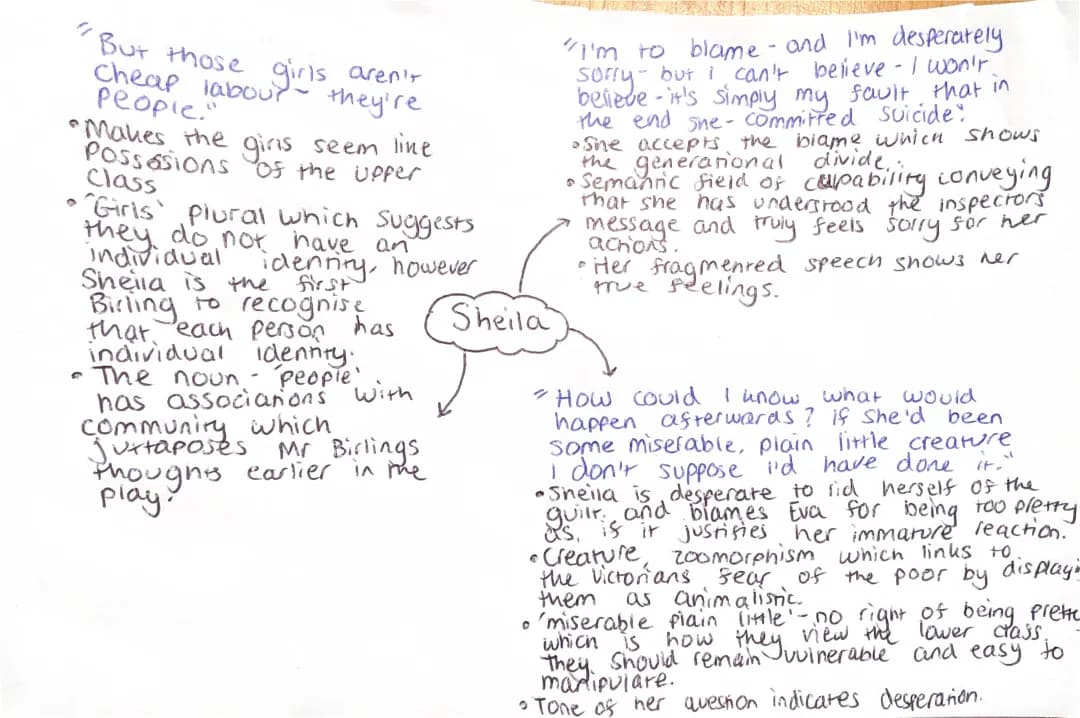 "But those girls aren't
cheap labour - they're
people."
• Makes the girls seem like
possesions of the upper
class
• 'Girls' plural which suggests
they do not have an
individual identity, however
Sheila is the first
Birling to recognise
that each person has
individual identity.
• The noun - 'people'
has associations with
community which
juxtaposes Mr Birlings
thoughts earlier in the
play.
Sheila
"I'm to blame - and I'm desperately
sorry - but i can't believe - I won't
believe - it's simply my fault that in
the end she - committed suicide".
• She accepts the blame which shows
the generational divide.
• Semantic field of culpability conveying
that she has understood the inspectors
message and truly feels sorry for her
actions.
• Her fragmented speech shows her
true feelings.
"How could I know what would
happen afterwards? if she'd been
some miserable, plain little creature
I don't suppose i'd have done it."
• Sheila is desperate to rid herself of the
guilt and blames Eva for being too pretty
as if it justifies her immature reaction.
• Creature, zoomorphism which links to
the Victorians fear of the poor by displayi
them as animalistic.
• 'miserable plain little' - no right of being prett
which is how they view the lower class.
They should remain vulnerable and easy to
manipulate.
• Tone of her question indicates desperation.